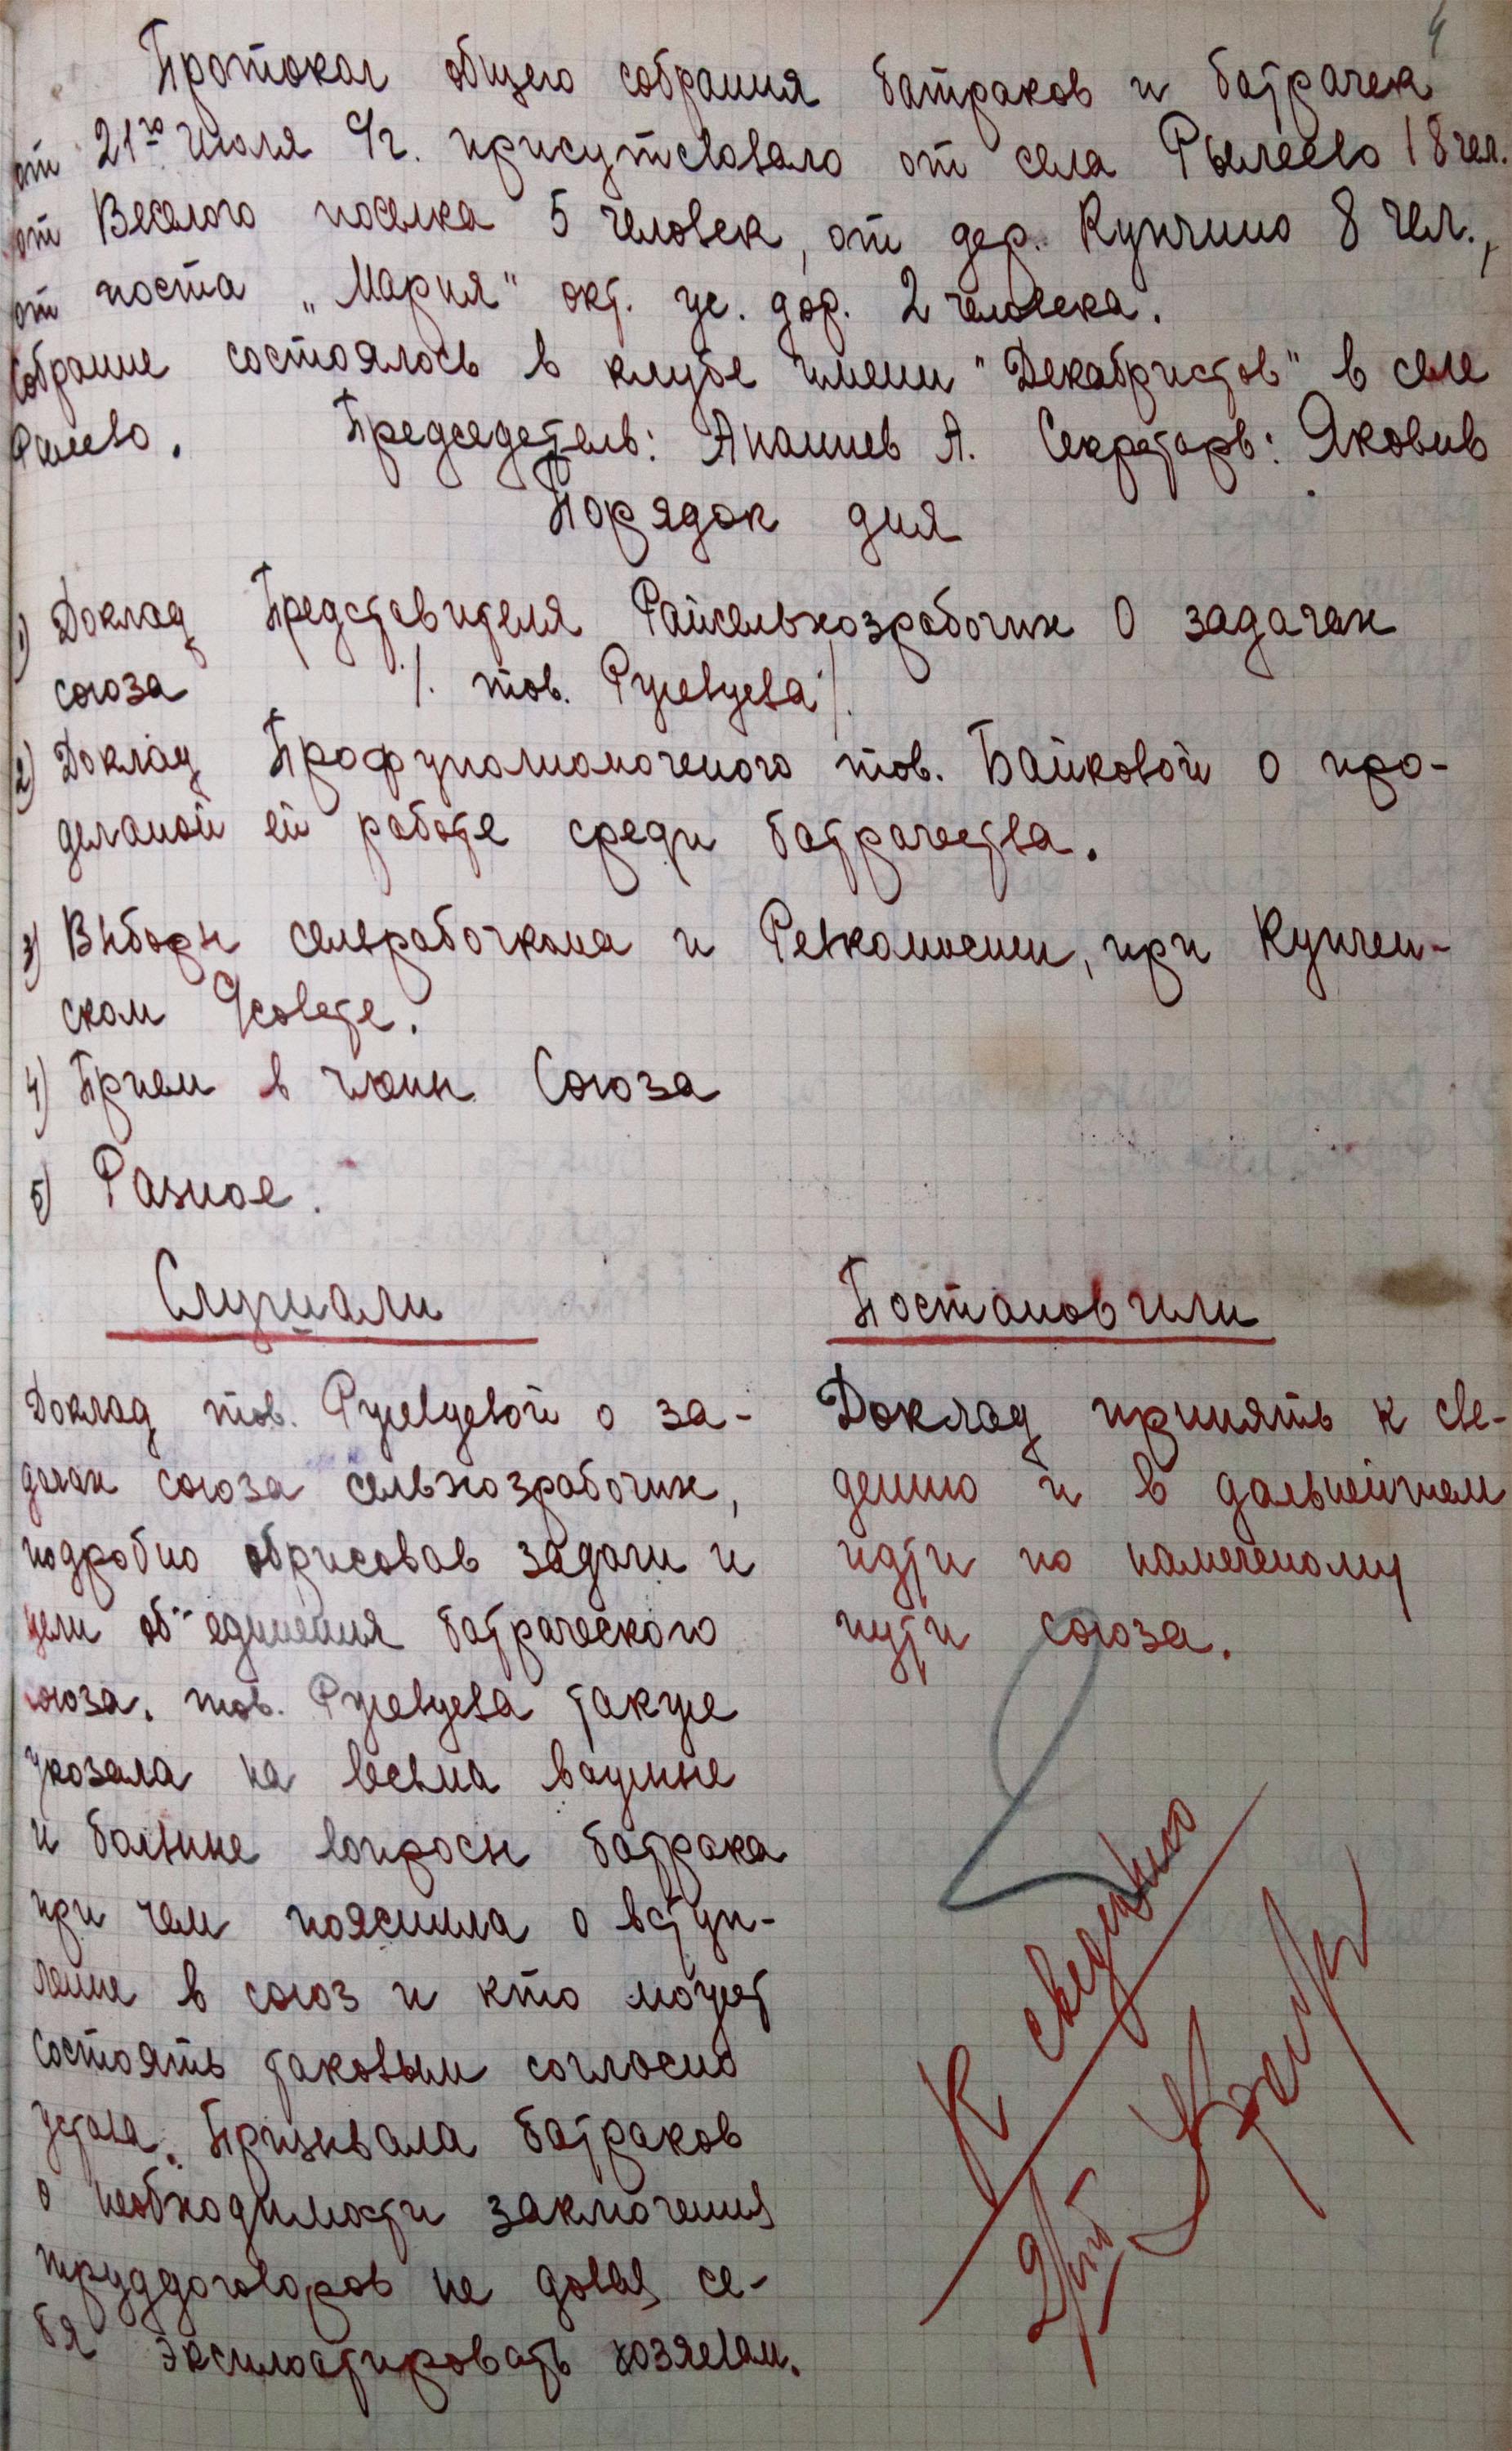 4
Протокол общего собрания батраков и батрачек
от 21го июля с/г. присутствовало от села Рылеево 18 чел.
от Веселого поселка 5 человек, от дер. Купчино 8 чел.,
от поста „Мария" окт. ж. дор. 2 человека.
Собрание состоялось в клубе имени "Декабристов" в селе
Рылеево. Председатель: Ананиев А. Секретарь: Яковлев
Порядок дня
1) Доклад Представителя Райсельхозрабочих О задачах
союза /. тов. Ржевцева ./
2) Доклад Профуполномоченого тов. Байковой о про-
деланой ей работе среди батрачества.
3) Выборы сельрабочкома и Ревкомиссии, при Купчен-
ском С/совете.
4) Прием в члены Союза
5) Разное.
Слушали Постановили
Доклад тов. о за-
дачах союза сельхозрабочих,
подробно обрисовав задачи и
цели об"единения батраческого
союза. тов. также
указала на весьма важные
и больные вопросы батрака
при чем пояснила о вступ-
ление в союз и кто может
состоять таковым согласно
устава. Призывала батраков
о необходимости заключения
труддоговоров не давая се-
бя эксплоатировать хозяевам.
Доклад принять к све-
дению и в дальнейшем
идти по намеченому
пути союза.
К сведению